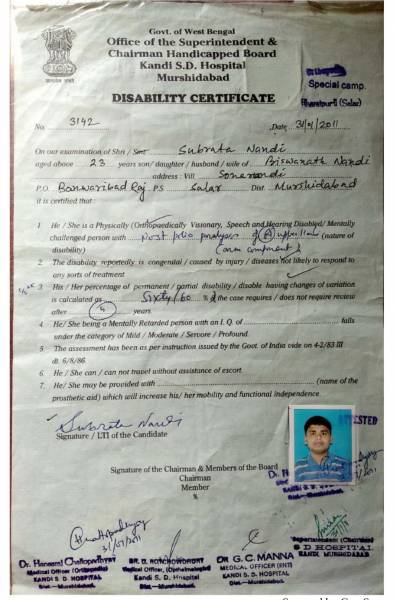 Govt. of West Bengal
Office of the Superintendent &
Chairman Handicapped Board
Kandi S.D. Hospital
Murshidabad
Special camp.
(Salar)
DISABILITY CERTIFICATE
No. 3142 Date 2011
On our examination of Shri / Smt Subrata Nandi
aged above 23 years son/ daughter / husband / wife of Biswanath Nandi
address : Vill Sonarundi
P.O. Banwaribad Raj P.S Salar Dist. Murshidabad
it is certified that :
1 He / She is a Physically (Orthopaedically Visionary, Speech and Hearing Disabled/ Mentally
challenged person with post polio paralysis of (nature of
disability)
2 The disability reportedly is congenital / caused by injury / diseases not likely to respond to
any sorts of treatment
3 His / Her percentage of permanent / partial disability / disable having changes of variation
is calculated as Sixty / 60 % the case requires / does not require review
after 5 years
4. He / She being a Mentally Retarded Person with an I. Q. of falls
under the category of Mild / Moderate / Servore / Profound.
5 The assessment has been as per instruction issued by the Govt. of India vide on 4-2/83 III
dt. 6/8/86.
6. He / She can / can not travel without assistance of escort.
7. He / She may be provided with (name of the
prosthetic aid) which will increase his/ her mobility and functional independence.
Subrata Nandi
Signature / LTI of the Candidate
ATTESTED
Signature of the Chairman & Members of the Board
Chairman
Member
Superintendent
S D HOSPITAL
KANDI, MURSHIDABAD
Medical Officer
KANDI S. D. HOSPITAL
Dist.—Murshidabad.
Medical Officer,
Kandi S. D. Hospital
Dist.—Murshidabad.
DR G. C. MANNA
MEDICAL OFFICER (ENT)
KANDI S. D. HOSPITAL
Dist.—Murshidabad.